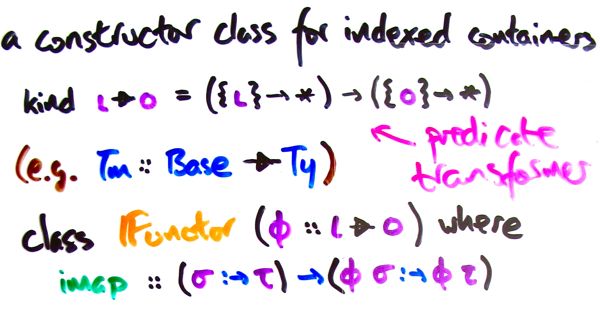 a constructor class for indexed containers
kind ι ▸ o = ({ι} → *) → ({o} → *)
← predicate
transformer
(e.g. Tm :: Base ▸ Ty)
class IFunctor (ϕ :: ι ▸ o) where
imap :: (σ :→ τ) → (ϕ σ :→ ϕ τ)